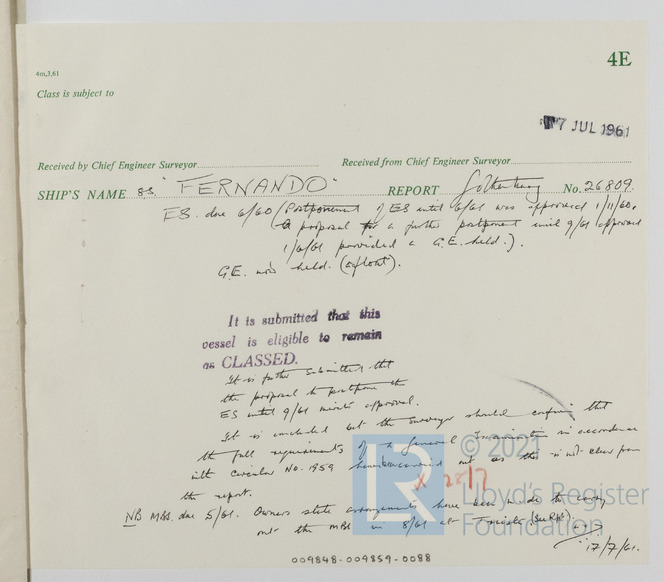 4E
4m,3,61
Class is subject to
7 JUL 1961
Received by Chief Engineer Surveyor
Received from Chief Engineer Surveyor
SHIP'S NAME S.S. "FERNANDO" REPORT Gothenburg No. 26809.
ES. due 6/60 (Postponement of ES until 6/61 was approved 1/11/60.
A proposal for a further postponement until 9/61 approved
1/6/61 provided a G.E. held.).
G.E. now held. (afloat).
It is submitted that this
vessel is eligible to remain
as CLASSED.
It is further submitted that
the proposal to postpone the
ES until 9/61 merits approval.
It is concluded but the surveyor should confirm that
the full requirements of a General Examination in accordance
with Circular No. 1959 have been carried out as this is not clear from
the report.
X 20/7
NB MBS. due 5/61. Owners state arrangements have been made to carry
out the MBS in 8/61 at Trieste
17/7/61.
© 2021
Lloyd's Register
Foundation
009848-009859-0088